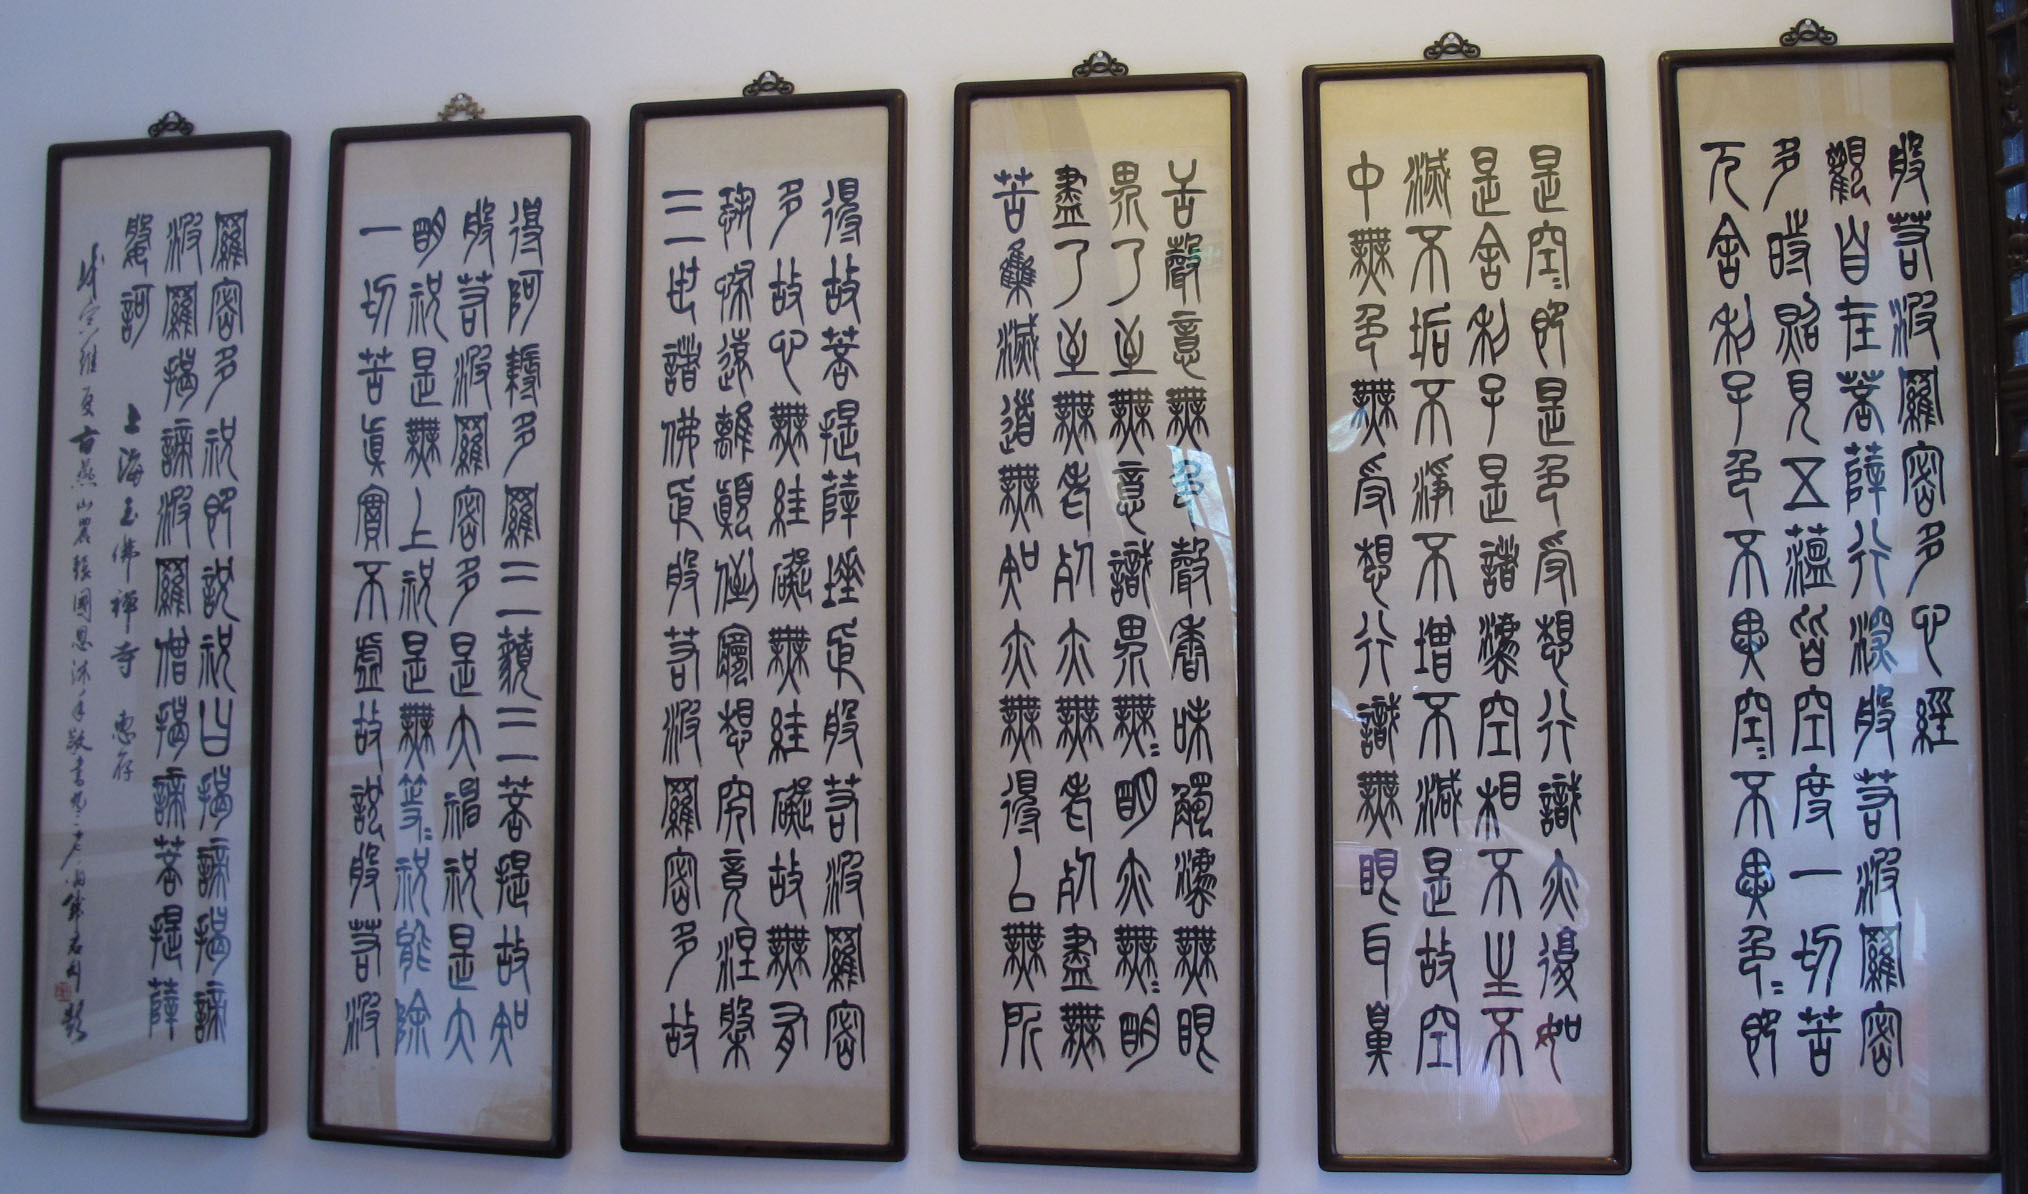 般若波羅密多心經
觀自在菩薩行深般若波羅密
多時照見五蘊皆空度一切苦
厄舍利子色不異空〻不異色〻即
是空〻即是色受想行識亦復如
是舍利子是諸法空相不生不
滅不垢不淨不增不減是故空
中無色無受想行識無眼耳鼻
舌聲意無色聲香味觸法無眼
界乃至無意識界無〻明亦無〻明
盡乃至無老死亦無老死盡無
苦集滅道無知亦無得以無所
得故菩提薩埵依般若波羅密
多故心無絓礙無絓礙故無有
恐怖遠離顛倒夢想究竟涅槃
三世諸佛依般若波羅密多故
得阿耨多羅三藐三菩提故知
般若波羅密多是大神祝是大
明祝是無上祝是無等〻祝能除
一切苦真實不虛故說般若波
羅密多祝即說祝曰揭諦揭諦
波羅揭諦波羅僧揭諦菩提薩
婆訶 上海玉佛禪寺 惠存
維夏古燕山農張國恩沐手敬書